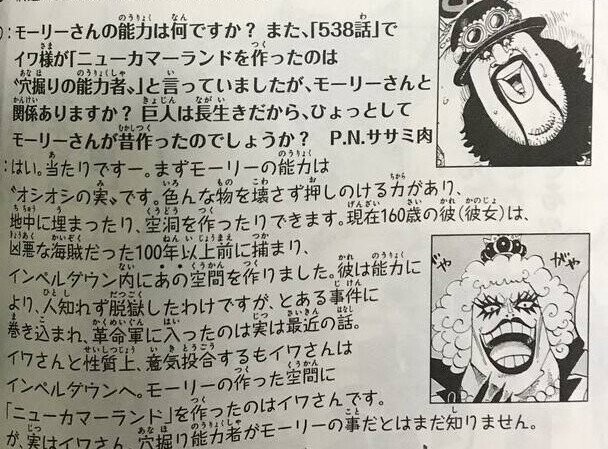 ：モーリーさんの能力は何ですか？ また、「538話」で
イワ様が「ニューカマーランドを作ったのは
“穴掘りの能力者〟」と言っていましたが、モーリーさんと
関係ありますか？ 巨人は長生きだから、ひょっとして
モーリーさんが昔作ったのでしょうか？ P.N.ササミ肉
：はい。当たりですー。まずモーリーの能力は
“オシオシの実〟です。色んな物を壊さず押しのける力があり、
地中に埋まったり、空洞を作ったりできます。現在160歳の彼(彼女)は、
凶悪な海賊だった100年以上前に捕まり、
インペルダウン内にあの空間を作りました。彼は能力に
より、人知れず脱獄したわけですが、とある事件に
巻き込まれ、革命軍に入ったのは実は最近の話。
イワさんと性質上、意気投合するもイワさんは
インペルダウンへ。モーリーの作った空間に
「ニューカマーランド」を作ったのはイワさんです。
が、実はイワさん、穴掘り能力者がモーリーの事だとはまだ知りません。
ぎゃ
がお